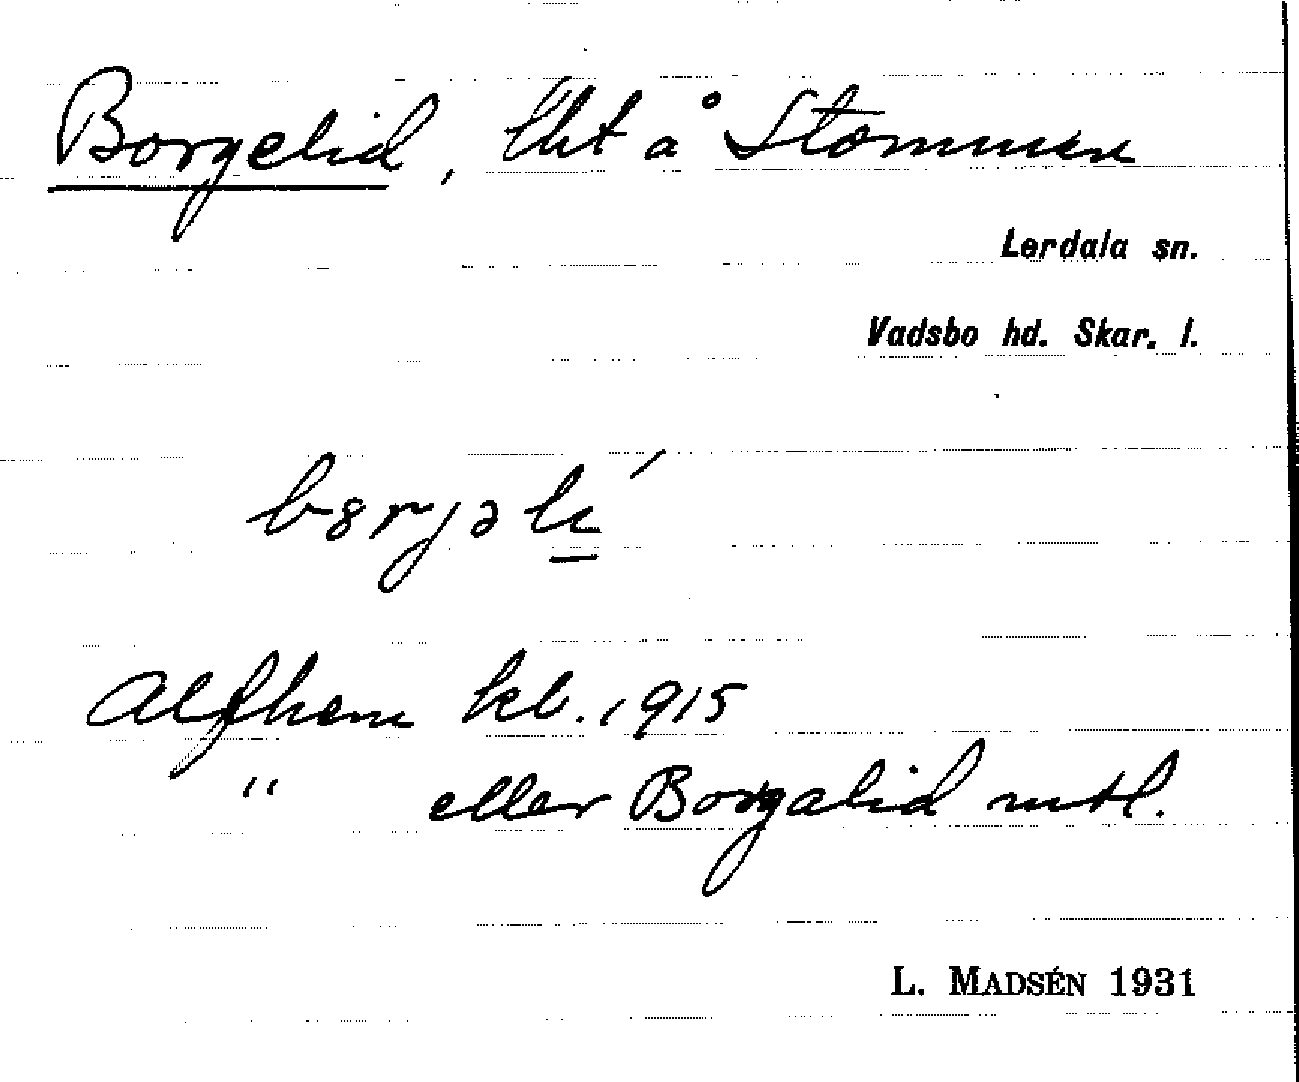 Borgelid, lht å Stommen
Lerdala sn.
Vadsbo hd. Skar. l.
Alfhem kb. 1915
" eller Borgalid mtl.
L. MADSÉN 1931